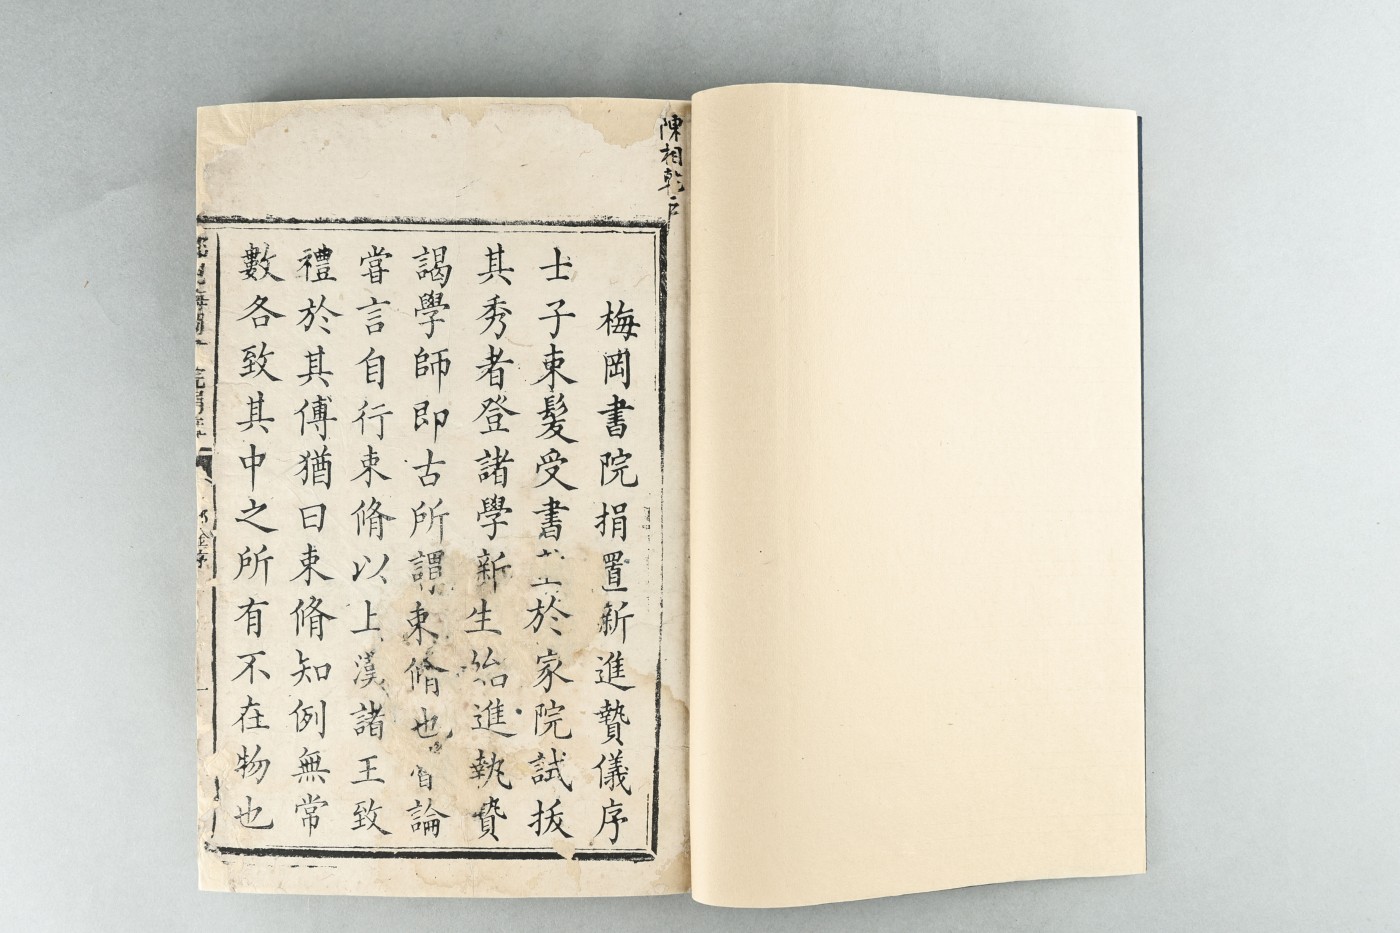 陳相乾
梅岡書院捐置新進贄儀序
士子束髮受書於家院試拔
其秀者登諸學新生始進執贄
謁學師即古所謂束脩也魯論
嘗言自行束脩以上漢諸王致
禮於其傅猶曰束脩知例無常
數各致其中之所有不在物也